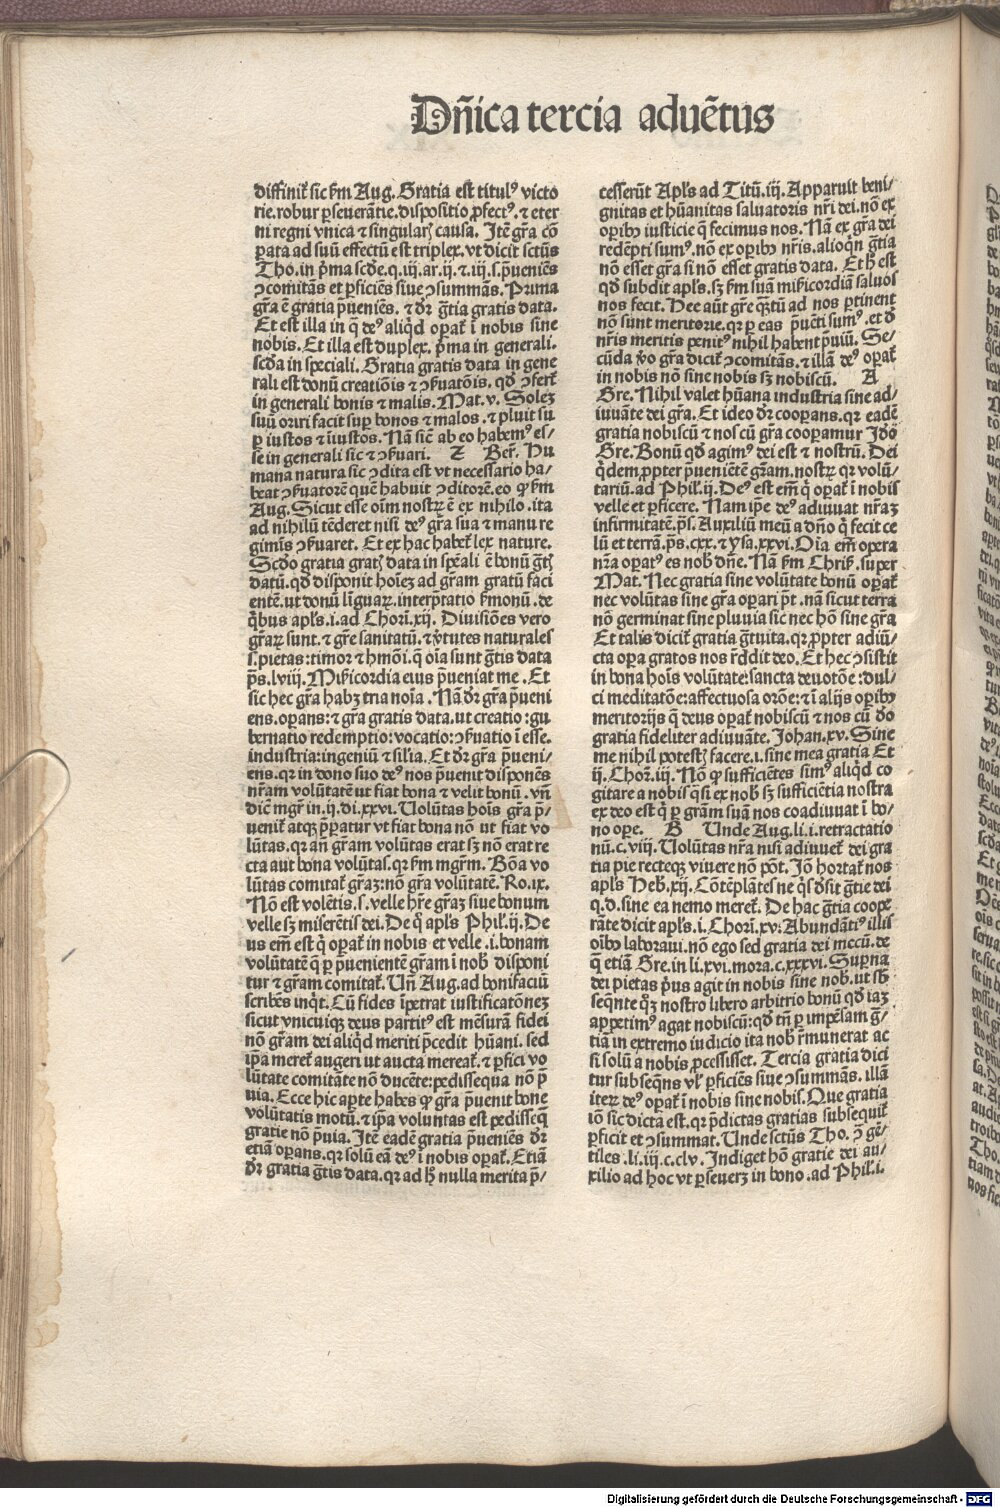 Dñica tercia aduẽtus
diffinit᷑ sic ẜm Aug. Gratia est titulꝰ victo
rie.robur ꝑseuerãtie.dispositio ꝓfectꝰ.⁊ eter
ni regni vnica ⁊ singularꝭ causa. Itẽ grã cõ
ꝑata ad suũ effectũ est triplex.vt dicit sctũs
Tho.in p̃ma scďe.q.iii.ar.ii.⁊.iii.s.p̃ueniẽs
ꝯcomitãs et ꝑficiẽs siue ꝯsummãs. Prima
grã ẽ gratia p̃ueniẽs. ⁊ dr̃ g̃tia gratis data.
Et est illa in q̃ deꝰ aliqd̃ oꝑat᷑ ĩ nobis sine
nobis. Et illa est duplex. p̃ma in generali.
scďa in speciali. Gratia gratis data in gene
rali est donũ creatiõis ⁊ ꝯẜuatõis. qď ꝯfert᷑
in generali bonis ⁊ malis. Mat.v. Solẽ
suũ oriri facit suꝑ bonos ⁊ malos.⁊ pluit su
ꝑ iustos ⁊ ĩiustos. Nã sic̃ ab eo habemꝰ es/
se in generali sic ⁊ ꝯẜuari. Z Ber̃. Hu
mana natura sic ꝯdita est vt necessario ha/
beat ꝯẜuatorẽ quẽ habuit ꝯditorẽ.eo ꝙ ẜm
Aug. Sicut esse oĩm nostrꝝ ẽ ex nihilo.ita
ad nihilũ tẽderet nisi deꝰ grã sua ⁊ manu re
gimĩs ꝯẜuaret. Et ex hac habet᷑ lex nature.
Scďo gratia gratꝭ data in sp̃eali ẽ bonũ g̃tꝭ
datũ.qď disponit hoĩeꝫ ad grãm gratũ faci
entẽ.ut donũ lĩguaꝝ.interp̃tatio ẜmonũ.de
q̃bus apl̃s.i.ad Chorĩ.xij. Diuisiões vero
grãꝝ sunt.⁊ grẽ sanitatũ.⁊ v̓tutes naturales
s.pietas:timor ⁊ hmõi.q̃ oĩa sunt g̃tis data
p̃s.lviij. Mir̃icordia eius p̃ueniat me. Et
sic hec grã habꝫ tria noĩa. Nã dr̃ grã p̃ueni
ens.oꝑans:⁊ grã gratis data.ut creatio:gu
bernatio redemptio:vocatio:ꝯẜuatio ĩ esse.
industria:ingeniũ ⁊ sil̃ia. Et dr̃ grã p̃ueni/
ens.qꝛ in dono suo deꝰ nos p̃uenit disponẽs
nr̃am volũtatẽ ut fiat bona ⁊ velit bonũ. vñ
dic̃ mgr̃ in.ij.di.xxvi. Uolũtas hoĩs grã p̃/
uenit᷑ atqꝫ p̃ꝑatur vt fiat bona nõ ut fiat vo
lũtas.qꝛ añ grãm volũtas erat sꝫ nõ erat re
cta aut bona volũtas.qꝛ ẜm mgr̃m. Bõa vo
lũtas comitat᷑ grãꝫ:nõ grã volũtatẽ. Ro.ix.
Nõ est volẽtis.s.velle hr̃e grãꝫ siue bonum
velle sꝫ miserẽtis dei. De q̃ apl̃s Phil̃.ij. De
us em̃ est q̃ oꝑat᷑ in nobis et velle.i.bonam
volũtatẽ q̃ ꝑ p̃uenientẽ grãm ĩ nob̃ disponi
tur ⁊ grãm comitat᷑. Uñ Aug.ad bonifaciũ
scribẽs inq̃t. Cũ fides ĩpetrat iustificatõneꝫ
sicut vnicuiqꝫ deus partitꝰ est mẽsurã fidei
nõ grãm dei aliqď meriti p̃cedit hũani. sed
ip̃a meret᷑ augeri ut aucta mereat᷑.⁊ ꝑfici vo
lũtate comitãte nõ ducẽte:pedissequa nõ p̃
uia. Ecce hic aꝑte habes ꝙ grã p̃uenit bone
volũtatis motũ.⁊ ip̃a voluntas est pedisseq̃
gratie nõ p̃uia. Itẽ eadẽ gratia p̃ueniẽs dr̃
etiã oꝑans.qꝛ solũ eã deꝰ ĩ nobis oꝑat᷑. Etiã
dr̃ gratia g̃tis data.qꝛ ad h̃ nulla merita p̃/
cesserũt Apl̃s ad Titũ.iij. Apparuit beni/
gnitas et hũanitas saluatoris nr̃i dei.nõ ex
oꝑibꝰ iusticie q̃ fecimus nos. Nã ex grã dei
redẽpti sumꝰ.nõ ex oꝑibꝰ nr̃is.alioqñ g̃tia
nõ esset grã si nõ esset gratis data. Et h̃ est
qď subdit apl̃s.sꝫ ẜm suã mir̃icordiã saluos
nos fecit. Hee aũt gr̃e q̃ꝫtũ ad nos ꝑtinent
nõ sunt meritorie.qꝛ ꝑ eas p̃uẽti sumꝰ.et ď
nr̃is meritis penitꝰ nihil habent p̃uiũ. Se/
cũda v̓o grã dicit᷑ ꝯcomitãs.⁊ illã deꝰ oꝑat᷑
in nobis nõ sine nobis sꝫ nobiscũ. A
Gre. Nihil valet hũana industria sine ad/
iuuãte dei grã. Et ideo dr̃ cooꝑans.qꝛ eadẽ
gratia nobiscũ ⁊ nos cũ grã cooꝑamur Idõ
Gre. Bonũ qď agimꝰ dei est ⁊ nostrũ. Dei
q̃dem ꝓpter p̃ueniẽtẽ grãm.nostrꝝ qꝛ volũ/
tariũ.ad Phil̃.ij. Deꝰ est em̃ q̃ oꝑat᷑ ĩ nobis
velle et ꝑficere. Nam ip̃e deꝰ adiuuat nr̃aꝫ
infirmitatẽ.p̃s. Auxiliũ meũ a dño q̃ fecit ce
lũ et terrã.p̃s.cxx.⁊ ysa.xxvi. Oĩa em̃ opera
nr̃a oꝑatꝰ es nob̃ dñe. Nã ẜm Chris̃.super
Mat. Nec gratia sine volũtate bonũ oꝑat᷑
nec volũtas sine grã oꝑari p̃t.nã sicut terra
nõ germinat sine pluuia sic nec hõ sine grã
Et talis dicit᷑ gratia g̃tuita.qꝛ ꝓpter adiũ/
cta oꝑa gratos nos r̃ddit deo. Et hec ꝯsistit
in bona hoĩs volũtate:sancta deuotõe:dul/
ci meditatõe:affectuosa orõe:⁊ ĩ alijs oꝑibꝰ
meritorijs q̃ deus oꝑat᷑ nobiscũ ⁊ nos cũ ďo
gratia fideliter adiuuãte. Johan.xv. Sine
me nihil potestꝭ facere.i.sine mea gratia Et
ij. Chorĩ.iij. Nõ ꝙ sufficiẽtes simꝰ aliqď co
gitare a nobis q̃si ex nob̃ sꝫ sufficiẽtia nostra
ex deo est q̃ ꝑ grãm suã nos coadiuuat ĩ bo/
no oꝑe. B Unde Aug.li.i.retractatio
nũ.c.viii. Uolũtas nr̃a nisi adiuuet᷑ dei gra
tia pie recteqꝫ viuere nõ põt. Iõ hortat᷑ nos
apl̃s Heb.xij. Cõtẽplãtes ne q̃s ďsit g̃tie dei
q.d.sine ea nemo meret᷑. De hac g̃tia coope
rãte dicit apl̃s.i. Chorĩ.xv: Abundãtiꝰ illis
oĩbꝰ laboraui.nõ ego sed gratia dei mecũ.de
q̃ etiã Gre.in li.xvi.mora.c.xxxvi. Superna
dei pietas p̃us agit in nobis sine nob̃.ut sb̃
seq̃nte q̃ꝫ nostro libero arbitrio bonũ qď iaꝫ
appetimꝰ agat nobiscũ:qď tñ ꝑ impẽsam g̃/
tiã in extremo iudicio ita nob̃ r̃munerat ac
si solũ a nobis ꝓcessisset. Tercia gratia dici
tur subseq̃ns vl̃ ꝑficiẽs siue ꝯsummãs. illã
iteꝝ deꝰ oꝑat᷑ ĩ nobis sine nobis. Que gratia
iõ sic dicta est.qꝛ p̃dictas gratias subsequit᷑
ꝑficit et ꝯsummat. Unde sctũs Tho. ꝯ̃ gẽ/
tiles.li.iii.c.clv. Indiget hõ gratie dei au/
xilio ad hoc vt ꝑseueꝫ in bono.ad Phil̃.i.
Digitalisierung gefördert durch die Deutsche Forschungsgemeinschaft - DFG